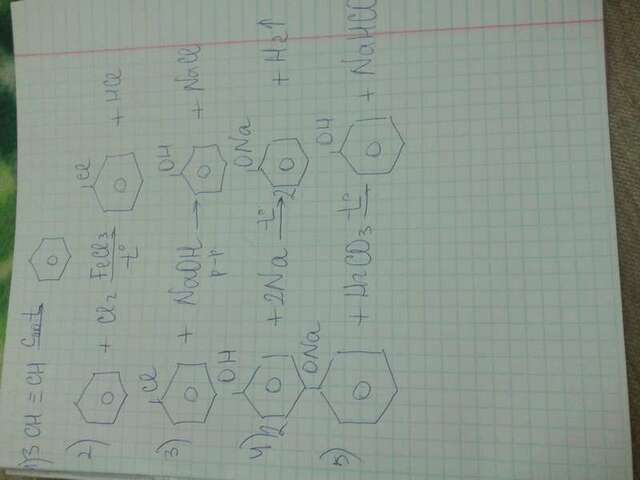 1) 3 CH ≡ CH Cакt.
2) + Cl2 FeCl3 t° Cl + HCl
3) Cl + NaOH р-р → OH + NaCl
4) 2 OH + 2Na t° → 2 ONa + H2↑
5) ONa + H2CO3 t° OH + NaHCO